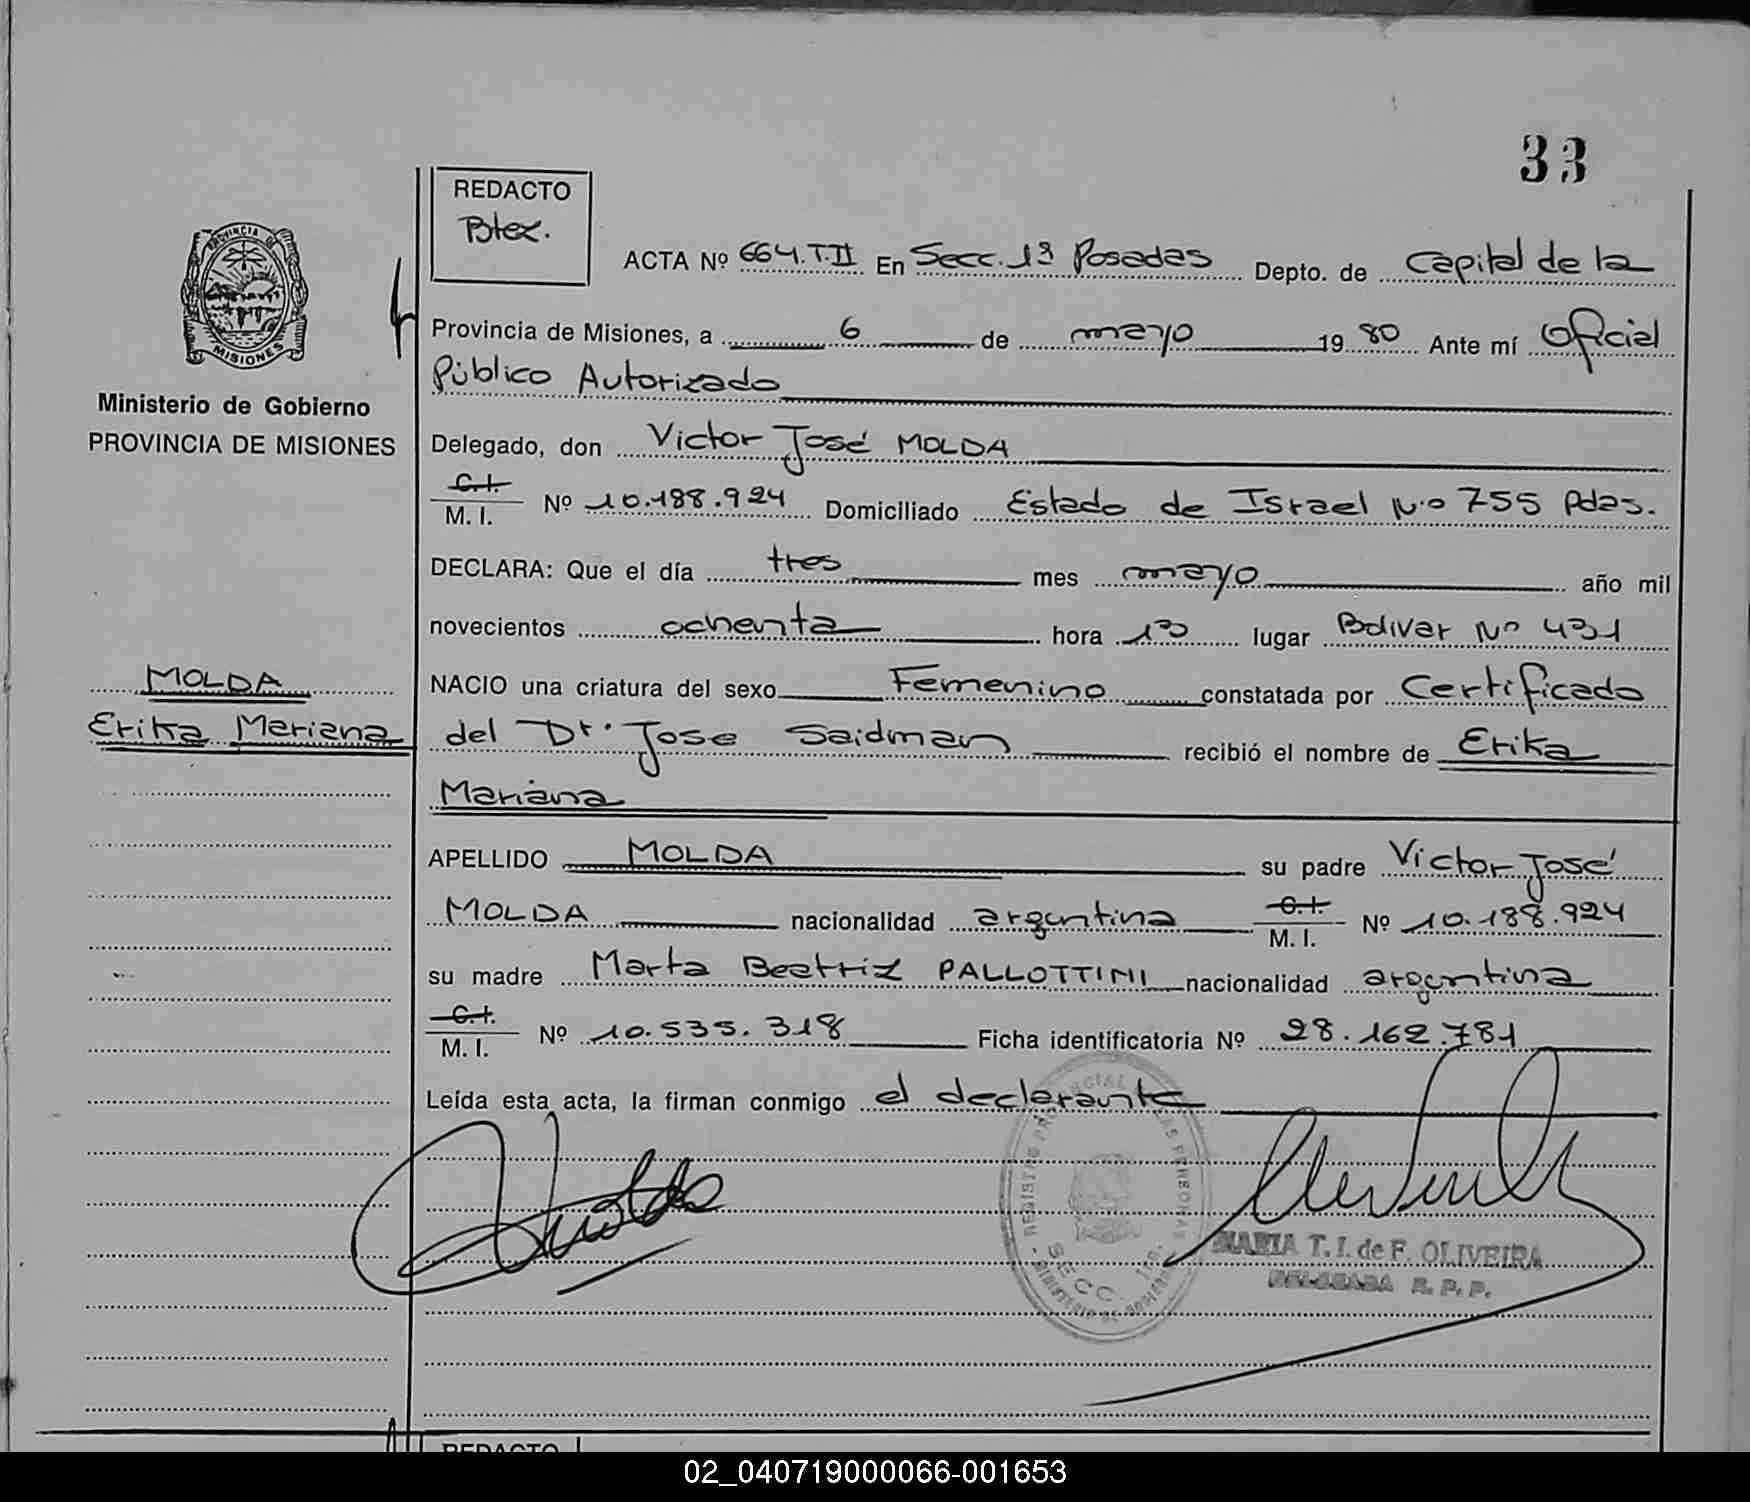 33
REDACTO
Btex.
ACTA Nº 664.T.II En Secc. 1ª Posadas Depto. de Capital de la
PROVINCIA DE
MISIONES
Provincia de Misiones, a 6 de mayo 1980 Ante mí Oficial
Público Autorizado
Ministerio de Gobierno
PROVINCIA DE MISIONES
Delegado, don Victor José MOLDA
C.I.
M. I. Nº 10.188.924 Domiciliado Estado de Israel N.o 755 Pdas.
DECLARA: Que el día tres mes mayo año mil
novecientos ochenta hora 13 lugar Bolivar Nº 431
MOLDA
Erika Mariana
NACIO una criatura del sexo Femenino constatada por Certificado
del Dr. Jose Saidman recibió el nombre de Erika
Mariana
APELLIDO MOLDA su padre Victor José
MOLDA nacionalidad argentina C.I. M. I. Nº 10.188.924
su madre Marta Beatriz PALLOTTINI nacionalidad argentina
C.I.
M. I. Nº 10.535.318 Ficha identificatoria Nº 28.162.781
Leída esta acta, la firman conmigo el declarante
REGISTRO PROVINCIAL DE LAS PERSONAS
SECC. 1ra.
MINISTERIO DE GOBIERNO
MARIA T. I. de F. OLIVEIRA
DELEGADA R. P. P.
REDACTO
02_040719000066-001653